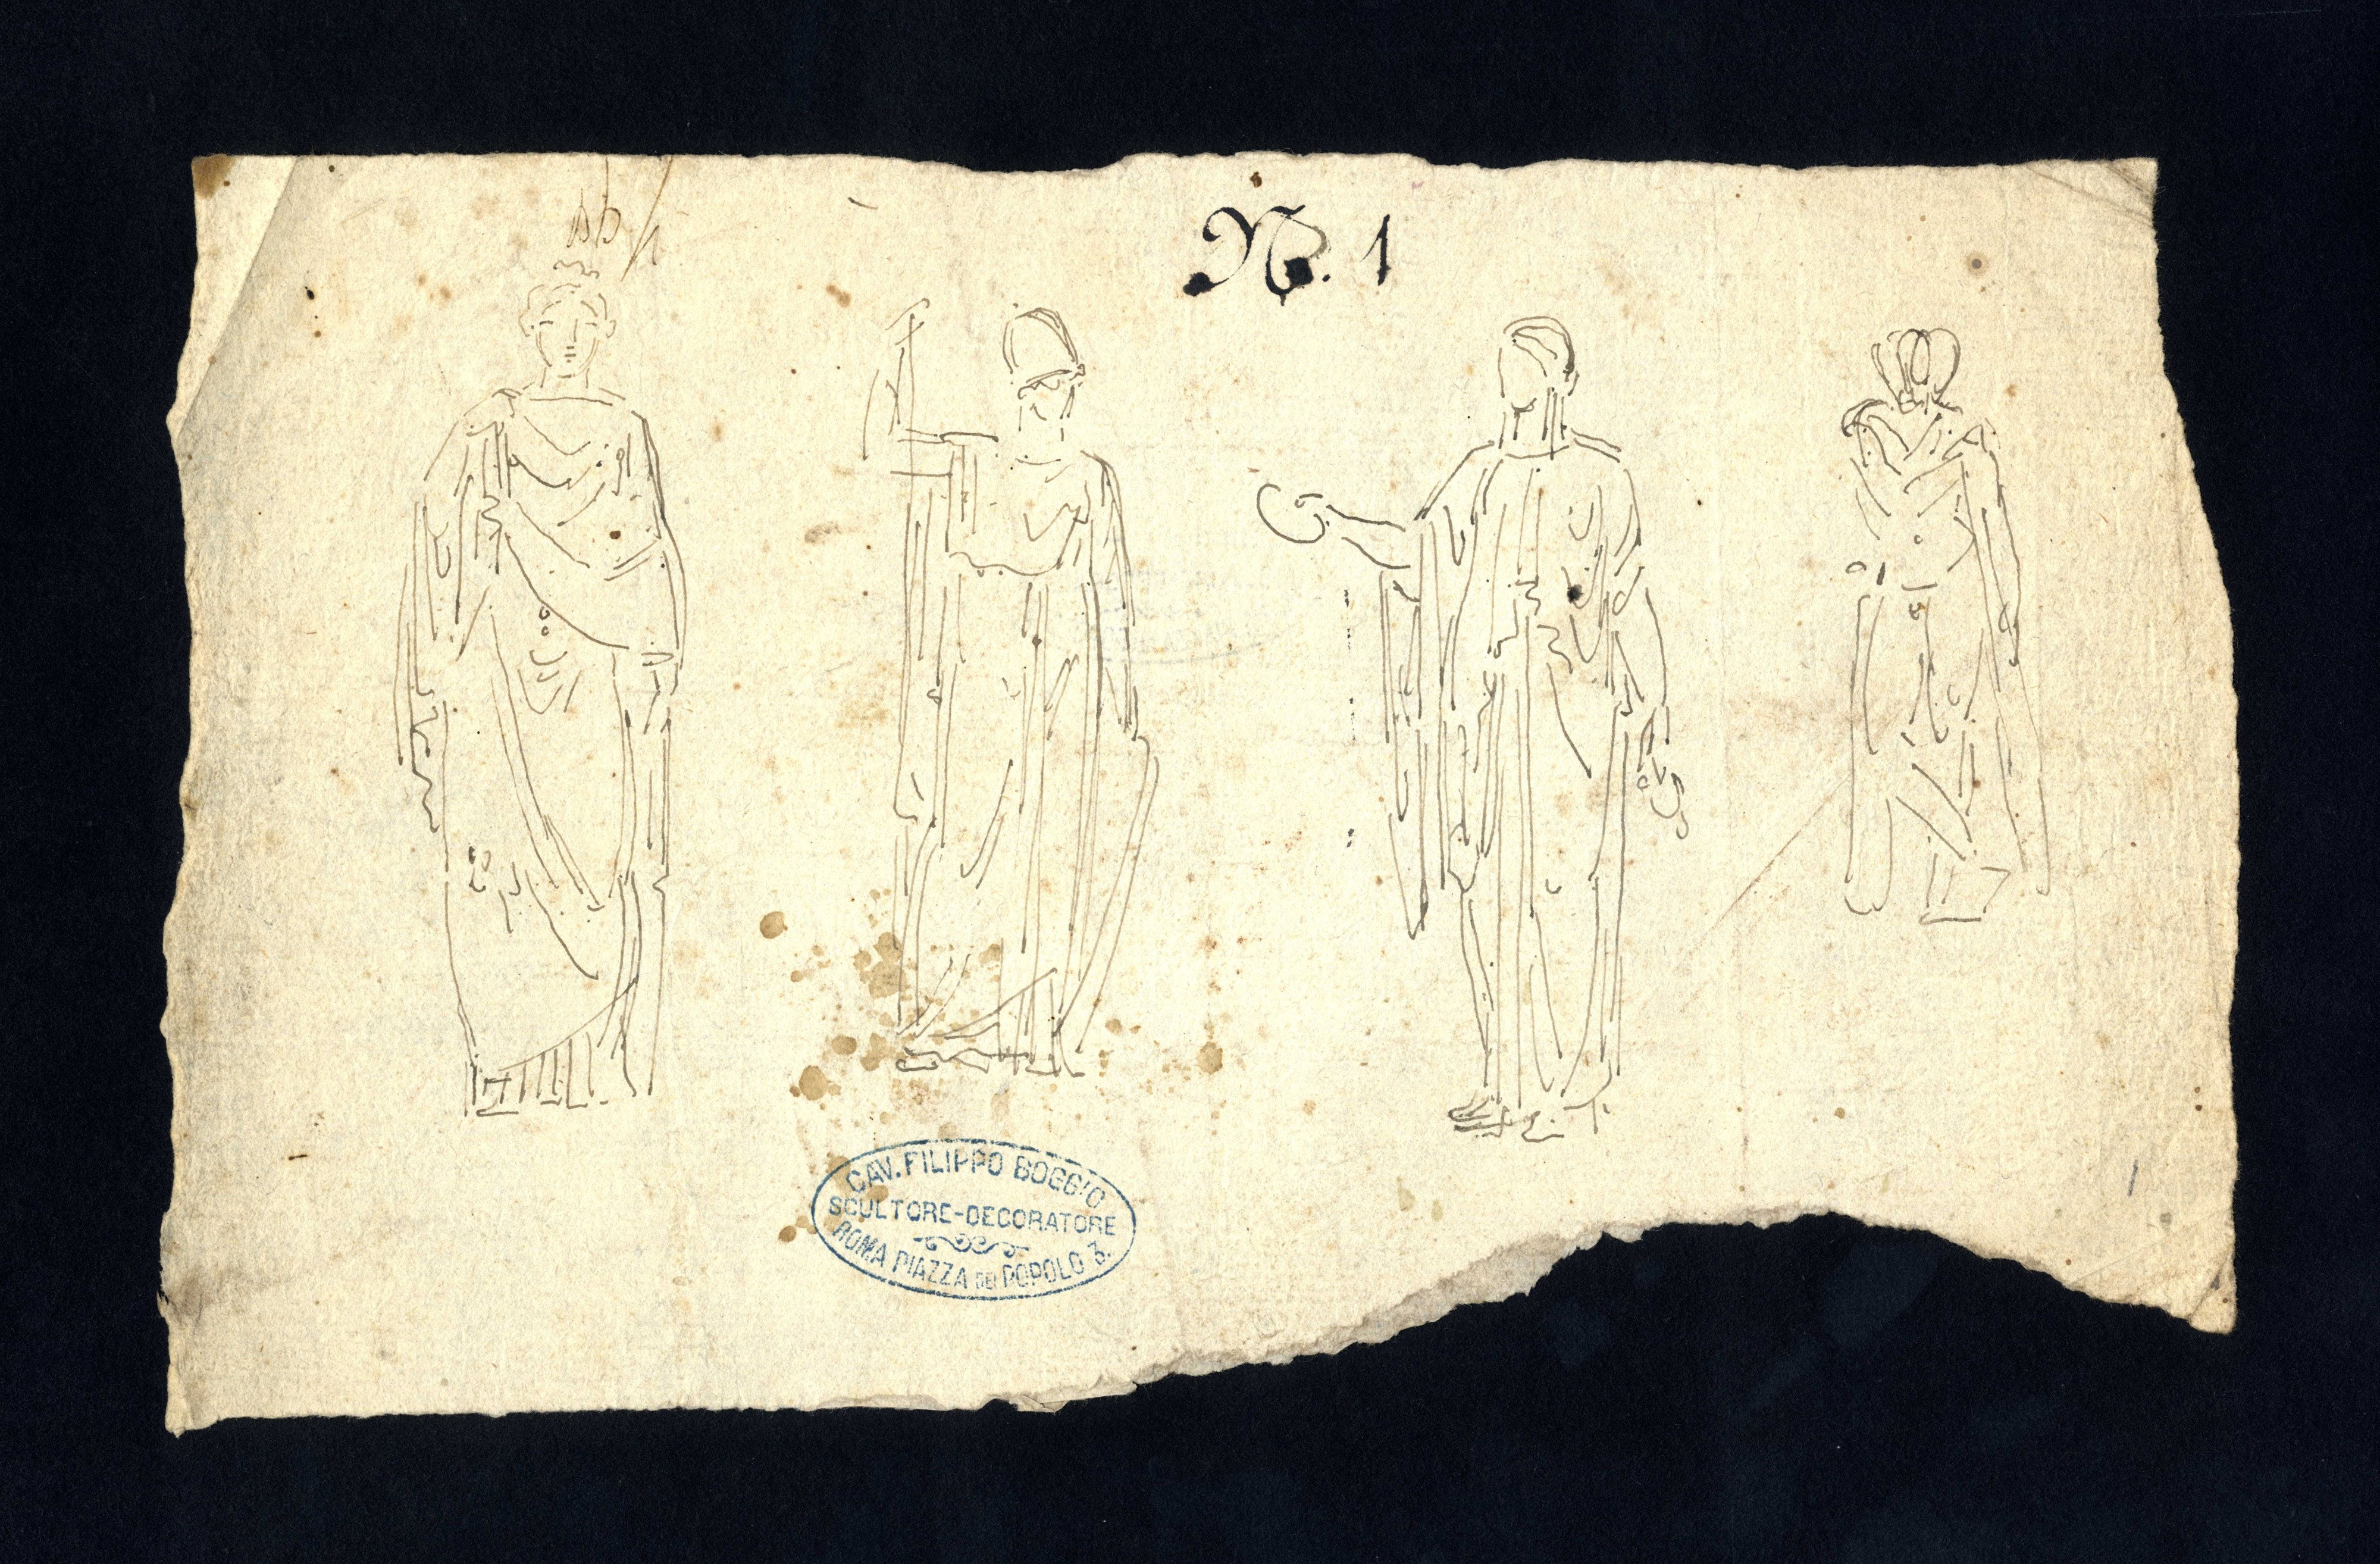 N. 1
CAV. FILIPPO BOGGIO
SCULTORE-DECORATORE
ROMA PIAZZA DEL POPOLO 3.
1